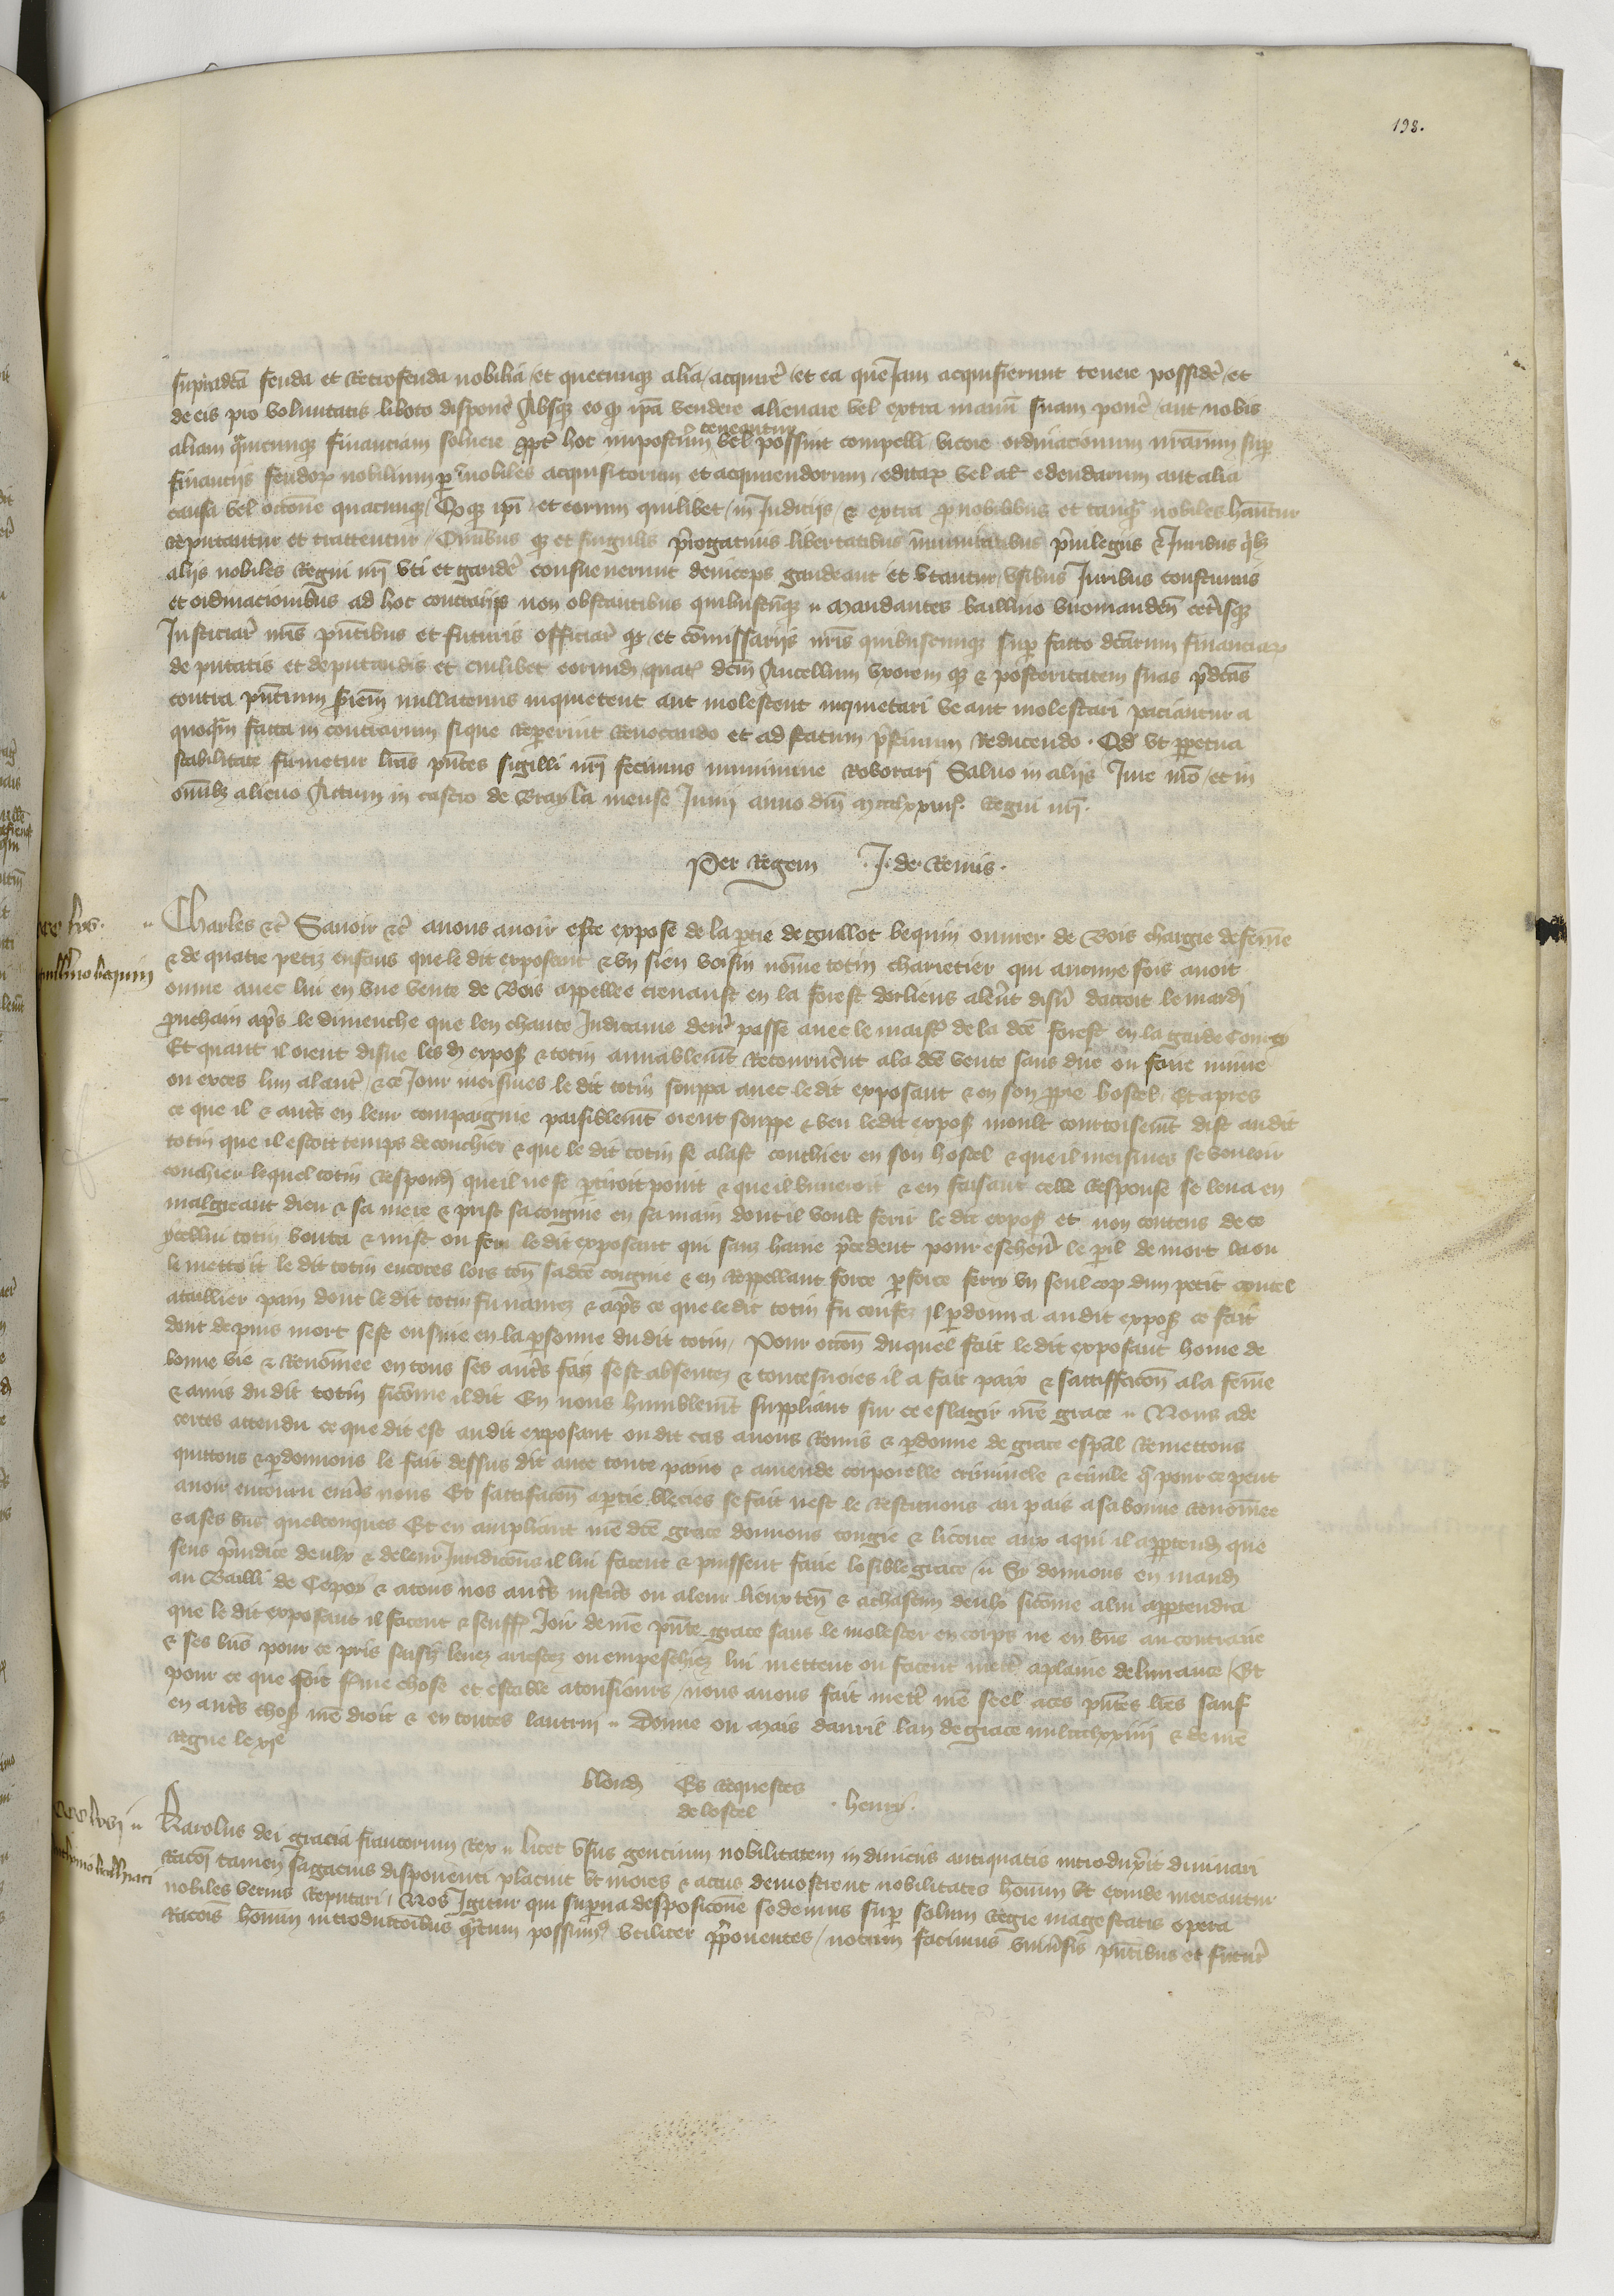 198.
supradcã feuda et Retrofeuda nobilia / et quecunqz alia / acquire / et ea que Jam acquisierunt tenere possidere / et
de eis pro voluntatis libito disponere Absqz eo qz ipã vendere alienare vel extra manũ suam ponere / aut nobis
aliam quicunqz financiam soluere ppt hoc imposterũ teneantur vel possint compelli / vigore ordinacionum nrarum sup
financijs feudor nobilium per īnobiles acquisitorum et acquirendorum / editar vel al edendarum aut alia
causa vel occõne quacunqz / Et qz ipi et eorum quilibet / in Judicijs / & extra pro nobilibus et tanqz nobiles hãntur
reputantur et trattentur / Omnibus qz et singulis prerogatiuis libertatibus īmunitatibus preuilegiis & Juribus qbz
alijs nobiles Regni nri vti et gaudere consueuerunt deinceps gaudeant et vtantur / vsibus Juribus constitutis
et ordinacionibus ad hoc contrarijs non obstantibus quibuscũqz " Mandantes bailliuo viromanden ceterisqz
Justiciar nris pntibus et futuris officiar qz et cõmissarijs nris quibuscunqz sup facto dcarum financiar
deputatis et deputandis et cuilibet eorumdem quatz dcm Ancellum vxorem qz & posteritatem suas predcas
contra pntium seriem nullatenus inquietent aut molestent inquietari ve aut molestari paciantur a
quoquam facta in contrarium sique repererint Reuocando et ad statum pristinum Reducendo . Qd vt perpetua
stabilitate firmetur lras pntes sigilli nri fecimus munimine Roborari Saluo in alijs Jure nro / et in
omnibz alieno Actum in castro de Brayla mense Junij anno dm Mccclxxiiijo Regni nri .
Per Regem . J . de Remis .
Charles &c Sauoir &c auons auoir este expose de la partie de guillot bequin ouurier de Bois chargie de feme
& de quatre petiz enfans que le dit exposant & vn sien voisin nõme totin charretier qui aucune fois auoit
ouure auec lui en vne vente de Bois appellee crenaust en la forest dorliens alerent disner dattoit le mardi
prucham apres le dimenche que len chante Judicame derr passe auec le maistre de la dce forest en la garde
Et quant il oient disne les diz expos & totin amiablement Retournerent a la dce vente sans dire ou faire iniure
ou exces lun a lautre / & ce Jour meismes le dit totin souppa auec le dit exposant & en son ppre hostel / Et apres
ce que il & autres en leur compaignie paisiblement oient souppe & beu le dit expos moult courtoisement dist au dit
totin que il estoit temps de couchier & que le dit totin se alast couchier en son hostel & que il meismes se vouloir
couchier lequel totin Respondi que il ne se partiroit point & que il buueroit & en faisant celle Response se leua en
malgreant dieu & sa mere & prist sa coignie en sa main dont il voult ferir le dit expos et non contens de ce
ycellui totin bouta & mist ou feu le dit exposant qui sans haine precedent pour escheuer le peril de mort la ou
le mettoit le dit totin encores lors tout sadce coignie & en Reppellant force par force feri vn seul cop dun petit coutel
a taillier pain dont le dit totin fu naurez & apres ce que le dit totin fu confez il perdonna au dit expos ce fait
dont depuis mort sest ensuie en la personne du dit totin / Pour occon duquel fait le dit exposant home de
bonne vie & Renõmee en tous ses autres faiz sest absentez & toutesuoies il a fait paix & sattisfacon a la feme
& amis du dit totin sicõme il dit En nous humblement suppliant sur ce eslargir nre grace " Nous ade
certes attendu ce que dit est au dit exposant ou dit cas auons Remis & perdonne de grace espal Remettons
quittons & perdonnons le fait dessus dit auec toute paine & amende corporelle criminele & ciuile q pour ce peut
auoir encouru enuers nous Et sattisfacon a partie blecies se fait nest le Restituons au pais a sa bonne Renõmee
& a ses biens quelconques Et en ampliant nre dce grace donnons congie & licence aux a qui il appartendra que
sens preiudice deulx & de leur Juridicõns il lui facent & puissent faire losible grace " Sy donnons en mand
au Bailli de Cepoy & a tous nos autres iusticiers ou a leur lieux ten & a chascun deulx sicõme a lui appartendra
que le dit exposant il facent & seuffr Joir de nre pnte grace sans le molester en corps ne en biens au contraire
& ses biens pour ce pris saisiz leuez arrestez ou empeschiez lui mettent ou facent mettre a plaine deliurance / Et
pour ce que soit ferme chose et estable a tousiours / nous auons fait mettre nre seel a ces pntes lres sauf
en autres choses nre droit & en toutes lautrui " Donne ou mais dauril lan de grace mil ccclxxiiij & de nre
Regne le xje
blond Es Requestes de lostel . henry .
Karolus dei gracia francorum Rex " licet vsus gencium nobilitatem in diuiciis antiquatis introduxerit diuinari
Racon tamen sagacius disponenti placuit vt mores & actus demostrent nobilitates hoium vt exinde mereantur
nobiles verius Reputari / Nos Jgitur qui superna desposicõne sedemus sup solium Regie magestatis opera
Racois hominum introductoibus qntum possumus vtiliter pponentes / notum facimus vniuersis pntibus et futur